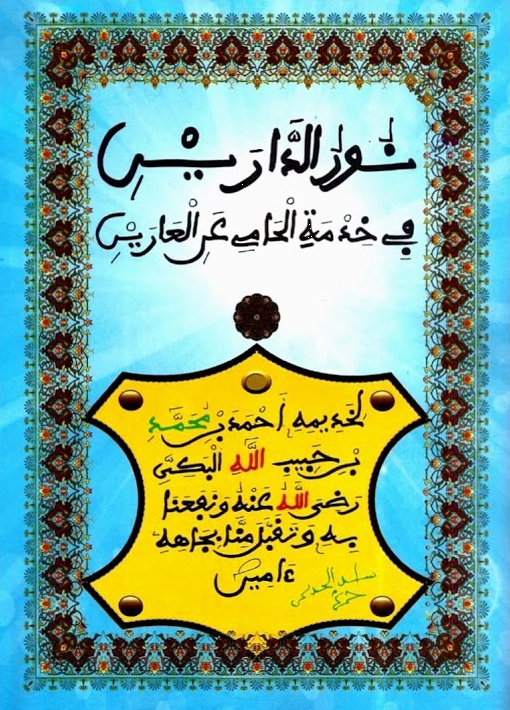 نُورُ الدَّارَيْنِ
فِي خِدْمَةِ الْحَامِي عَنِ الْعَارَيْنِ
لخديمه أَحْمَدَ بْنِ مُحَمَّدِ
بْنِ حَبِيبِ اللَّهِ الْبَكِّىِّ
رَضِىَ اللَّهُ عَنْهُ وَنَفَعَنَا
بِهِ وَتَقَبَّلَ مِنَّا بِجَاهِهِ
ءَامِين